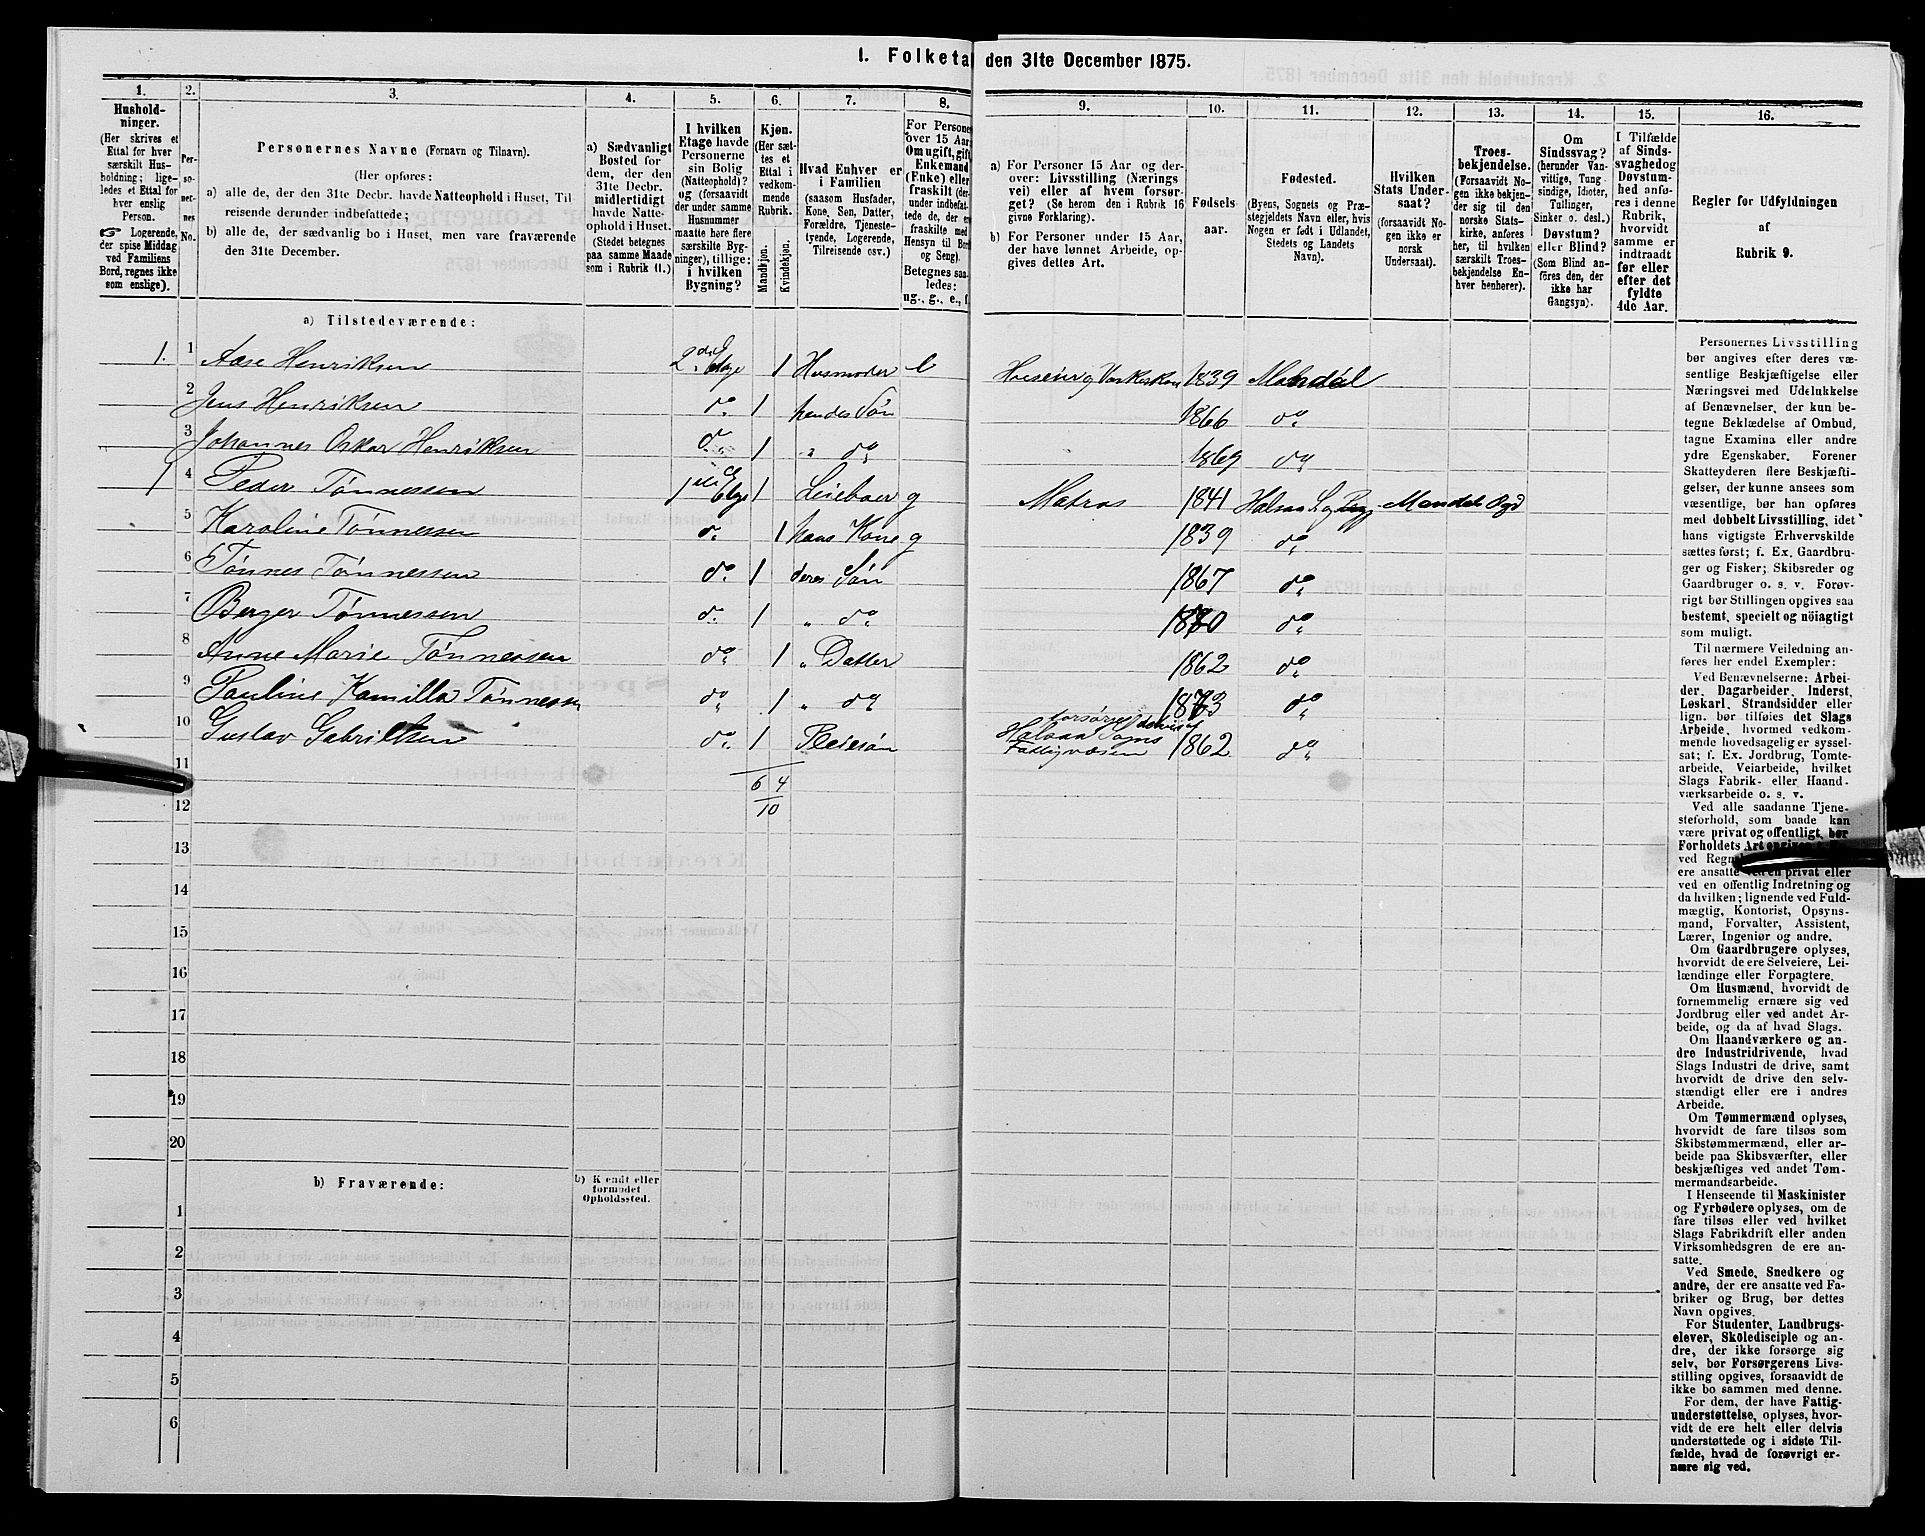 1. Folketal den 31te December 1875.
1. 2. 3. 4. 5. 6. 7. 8. 9. 10. 11. 12. 13. 14. 15. 16.
Hushold-
ninger.
(Her skrives et
Ettal for hver
særskilt Hus-
holdning; lige-
ledes et Ettal for
hver enslig
Person.
☞ Logerende,
der spise Middag
ved Familiens
Bord, regnes ikke
som enslige).
Per-
so-
ner-
nes
No.
Personernes Navne (Fornavn og Tilnavn).
(Her opføres:
a) alle de, der den 31te Decbr. havde Natteophold i Huset, Til-
reisende derunder indbefattede;
b) alle de, der sædvanlig bo i Huset, men vare fraværende
den 31te December.
a) Sædvanligt
Bosted for
dem, der den
31te Decbr.
midlertidigt
havde Natte-
ophold i Huset.
(Stedet betegnes
paa samme Maade
som i Rubrik 11.)
I hvilken
Etage havde
Personerne
sin Bolig
(Natteophold)?
og (forsaavidt
der under samme
Husnummer
maatte høre flere
særskilte Byg-
ninger), tillige:
i hvilken
Bygning?
Kjøn.
(Her sæt-
tes et
Ettal i
vedkom-
mende
Rubrik.
Mandkjøn.
Kvindekjøn.
Hvad Enhver er
i Familien
(saasom Husfader,
Kone, Søn, Datter,
Forældre, Tjeneste-
tyende, Logerende,
Tilreisende osv.)
For Personer
over 15 Aar:
Om ugift, gift,
Enkemand
(Enke) eller
fraskilt (der-
under indbefat-
tede de, der ere
fraskilte med
Hensyn til Bord
og Seng).
Betegnes saa-
ledes:
ug., g., e., f.
a) For Personer 15 Aar og der-
over: Livsstilling (Nærings-
vei) eller af hvem forsør-
get? (Se herom den i Rubrik 16
givne Forklaring).
b) For Personer under 15 Aar,
der have lønnet Arbeide, op-
gives dettes Art.
Fødsels-
aar.
Fødested.
(Byens, Sognets og Præ-
stegjeldets Navn eller, hvis
Nogen er født i Udlandet,
Stedets og Landets
Navn).
Hvilken
Stats Under-
saat?
(forsaavidt No-
gen ikke er
norsk
Undersaat).
Troes-
bekjendelse.
(Forsaavidt No-
gen ikke bekjen-
der sig til den
norske Stats-
kirke, anføres
her, til hvilken
særskilt Troes-
bekjendelse En-
hver henhører).
Om
Sindssvag?
(herunder Van-
vittige, Tung-
sindige, Idioter,
Tullinger,
Sinker o. desl.)
Døvstum?
eller Blind?
(Som Blind an-
føres den, der
ikke har
Gangsyn).
I Tilfælde
af Sinds-
svaghed og
Døvstum-
hed anfø-
res i denne
Rubrik,
hvorvidt
samme er
indtraadt
før eller
efter det
fyldte
4de Aar.
Regler for Udfyldningen
af
Rubrik 9.
a) Tilstedeværende:
1. 1 Aase Henriksen 2den Etage 1 Husmoder e Huseier og Vaskekon 1839 Mandal
2 Jens Henriksen do. 1 hendes Søn 1866 do.
3 Johannes Oskar Henriksen do. 1 " do. 1869 do.
1 4 Peder Tønnessen 1ste Etage 1 Leieboer g Matros 1841 Halsaa Mandal
5 Karoline Tønnessen do. 1 hans Kone g 1839 do.
6 Tønnes Tønnessen do. 1 deres Søn 1867 do.
7 Berger Tønnessen do. 1 " do. 1870 do.
8 Anne Marie Tønnessen do. 1 " Datter 1862 do.
9 Pauline Kamilla Tønnessen do. 1 " do. 1873 do.
10 Gustav Gabrielsen do. 1 Pleiesøn forsørges delvis af Halsaa Sogns Fattigvæsen 1862 do.
11 6 4
12 10
13
14
15
16
17
18
19
20
b) Fraværende:
b) Kjendt eller
formodet
Opholdssted.
1
2
3
4
5
6
Personernes Livsstilling
bør angives efter deres væ-
sentlige Beskjæftigelse eller
Næringsvei med Udelukkelse
af Benævnelser, der kun be-
tegne Beklædelse af Ombud,
tagne Examina eller andre
ydre Egenskaber. Forener
Skatteyderen flere Beskjæfti-
gelser, der kunne ansees som
væsentlige, bør han opføres
med dobbelt Livsstilling, idet
hans vigtigste Erhvervskilde
sættes først; f. Ex. Gaardbru-
ger og Fisker; Skibsreder og
Gaardbruger o. s. v. Forøv-
rigt bør Stillingen opgives saa
bestemt, specielt og nöiagtigt
som muligt.
Til nærmere Veiledning an-
føres her endel Exempler:
Ved Benævnelserne: Arbei-
der, Dagarbeider, Inderst,
Løskarl, Strandsidder eller
lign. bør tilføies det Slags
Arbeide, hvormed vedkom-
mende hovedsagelig er syssel-
sat; f. Ex. Jordbrug, Tomte-
arbeide, Veiarbeide, hvilket
Slags Fabrik- eller Haand-
værksarbeide o. s. v.
Ved alle saadanne Tjene-
steforhold, som baade kan
være privat og offentligt, bør
Forholdets Art
ved
ere ansatte ved en privat eller
ved en offentlig Indretning og
da hvilken; lignende ved Fuld-
mægtig, Kontorist, Opsyns-
mand, Forvalter, Assistent,
Lærer, Ingeniør og andre.
Om Gaardbrugere oplyses,
hvorvidt de ere Selveiere, Lei-
lændinge eller Forpagtere.
Om Husmænd, hvorvidt de
fornemmelig ernære sig ved
Jordbrug eller ved andet Ar-
beide, og da af hvad Slags.
Om Haandværkere og an-
dre Industridrivende, hvad
Slags Industri de drive, samt
hvorvidt de drive den selv-
stændigt eller ere i andres
Arbeide.
Om Tømmermænd oplyses,
hvorvidt de fare tilsøs som
Skibstømmermænd, eller ar-
beide paa Skibsværfter, eller
beskjæftiges ved andet Tøm-
mermandsarbeide.
I Henseende til Maskinister
og Fyrbødere oplyses, om de
fare tilsøs eller ved hvilket
Slags Fabrikdrift eller anden
Virksomhedsgren de ere an-
satte.
Ved Smede, Snedkere og
andre, der ere ansatte ved Fa-
briker og Brug, bør dettes
Navn opgives.
For Studenter, Landbrugs-
elever, Skoledisciple og an-
dre, der ikke forsørge sig
selv, bør Forsørgerens Livs-
stilling opgives, forsaavidt de
ikke bo sammen med denne.
For dem, der have Fattig-
understøttelse, oplyses, hvor-
vidt de ere helt eller delvis
understøttede og i sidste Til-
fælde, hvad de forøvrigt er-
nære sig ved.